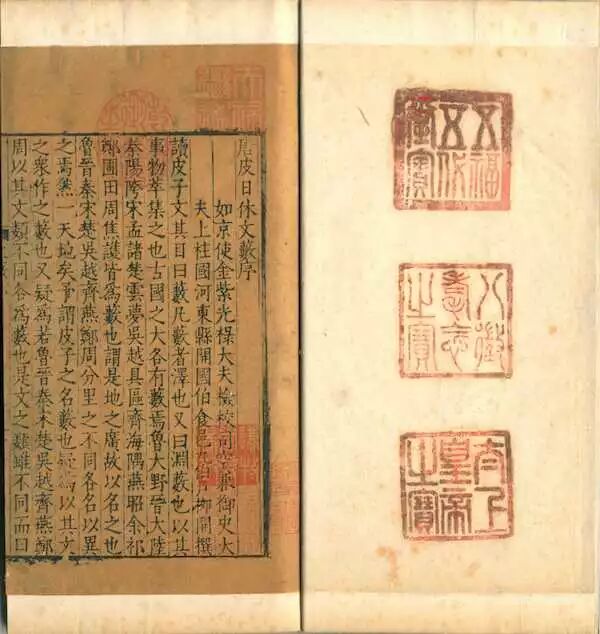 五福五代堂寶
八徵耄念之寶
太上皇帝之寶
唐皮日休文藪序
如京使金紫光祿大夫檢校司空兼御史大
夫上柱國河東縣開國伯食邑九百戶柳開撰
讀皮子文其目曰藪凡藪者澤也又曰淵藪也以其
事物萃集之也古國之大各有藪焉魯大野晉大陸
秦陽陓宋孟諸楚雲夢吳越具區齊海隅燕昭余祁
鄭圃田周焦護皆為藪也謂是地之廣故以名之也
魯晉秦宋楚吳越齊燕鄭周分里之不同各名以異
之焉燕一天地矣予謂皮子之名藪也疑為以其文
之衆作之藪也又疑為若魯晉秦宋楚吳越齊燕鄭
周以其文類不同各為藪也是文之雜雖不同而曰